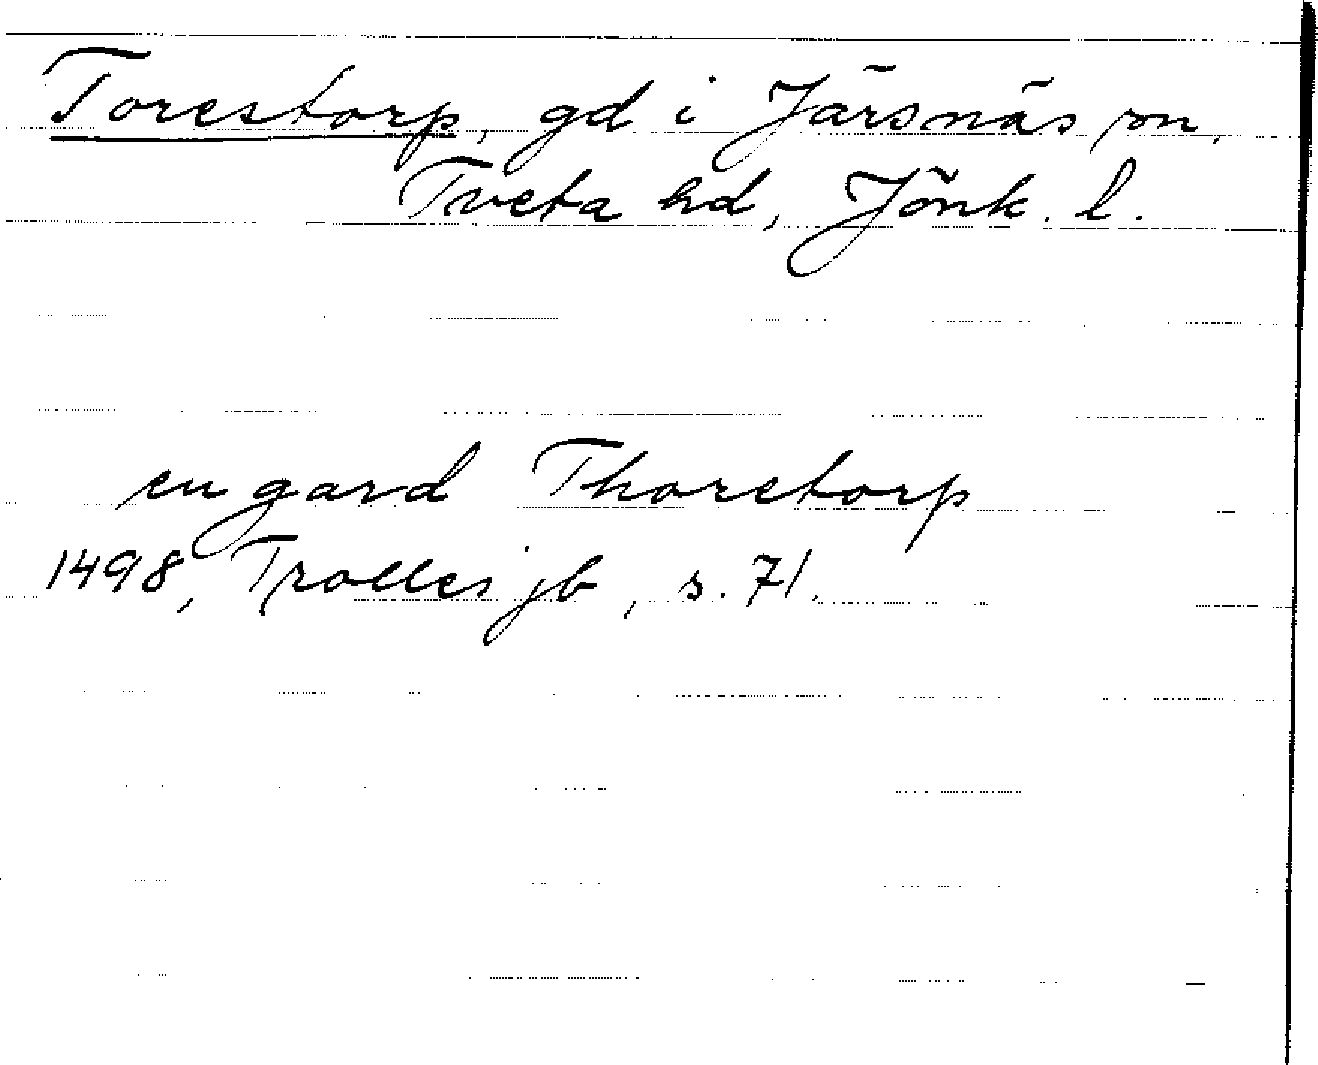 Torestorp, gd i Järsnäs sn,
Tveta hd, Jönk. l.
en gard Thoretorp
1498, Trolles jb, s. 71.